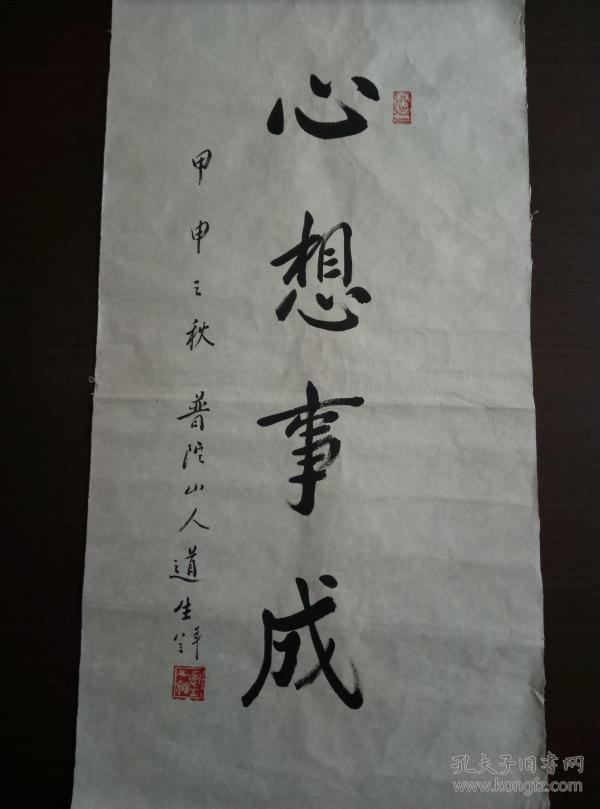 心想事成
甲申之秋 普陀山人道生
孔夫子旧书网
www.kongfz.com